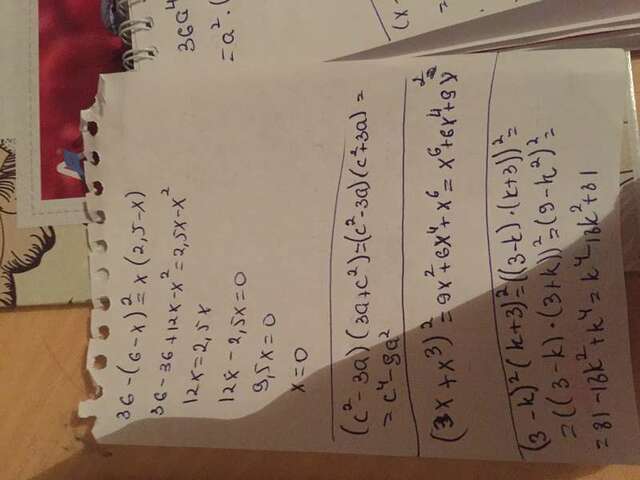 36-(6-x)²=x(2,5-x)
36-36+12x-x²=2,5x-x²
12x=2,5x
12x-2,5x=0
9,5x=0
x=0
(c²-3a)(3a+c²)=(c²-3a)(c²+3a)=
=c⁴-9a²
(3x+x³)²=9x²+6x⁴+x⁶=x⁶+6x⁴+9x²
(3-k)²(k+3)²=((3-k)·(k+3))²=
=((3-k)·(3+k))²=(9-k²)²=
=81-18k²+k⁴=k⁴-18k²+81
36a⁴
=a²·(
(x
=